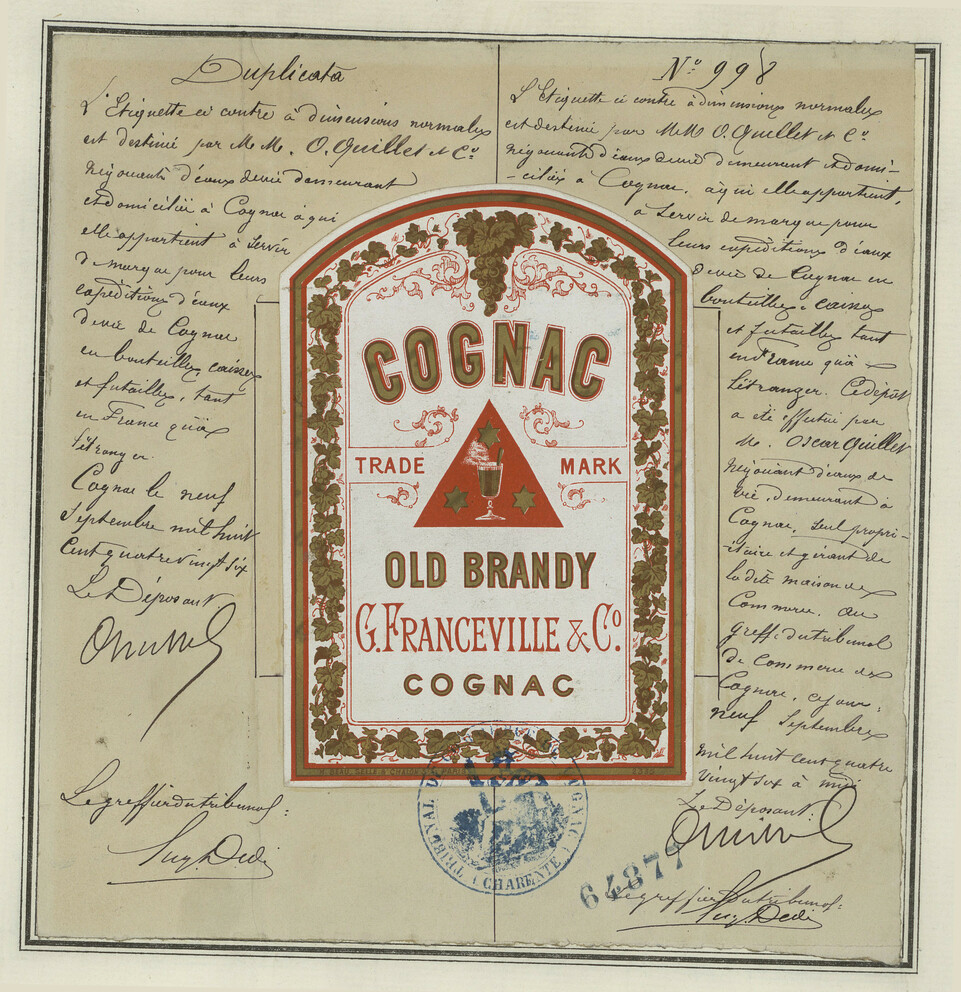 Duplicata
L'Etiquette ci contre à dimensions normales
est destinée par M.M. O. Quillet et Cº
négociants d'eaux de vie demeurant
et domiciliés à Cognac à qui
elle appartient à servir
de marque pour leurs
expéditions d'eaux
de vie de Cognac
en bouteilles, caisses
et futailles, tant
en France qu'à
l'étranger.
Cognac le neuf
Septembre mil huit
cent quatre vingt six
Le Déposant
Le greffier du tribunal:
Nº 998
L'Etiquette ci contre à dimensions normales
est destinée par MM. O. Quillet et Cº
négociants d'eaux de vie demeurant et domi-
-ciliés à Cognac, à qui elle appartient,
à servir de marque pour
leurs expéditions d'eaux
de vie de Cognac en
bouteilles, caisses
et futailles tant
en France qu'à
l'étranger. Ce dépôt
a été effectué par
M. Oscar Quillet
négociant d'eaux de
vie, demeurant à
Cognac, seul propri-
étaire et gérant de
la dite maison de
Commerce. au
greffe du tribunal
de commerce de
Cognac, ce jour:
neuf Septembre
mil huit cent quatre
vingt six à midi
Le Déposant.
Le greffier du tribunal:
COGNAC
TRADE MARK
OLD BRANDY
G. FRANCEVILLE & Cº
COGNAC
TRIBUNAL COGNAC
(CHARENTE)
64877